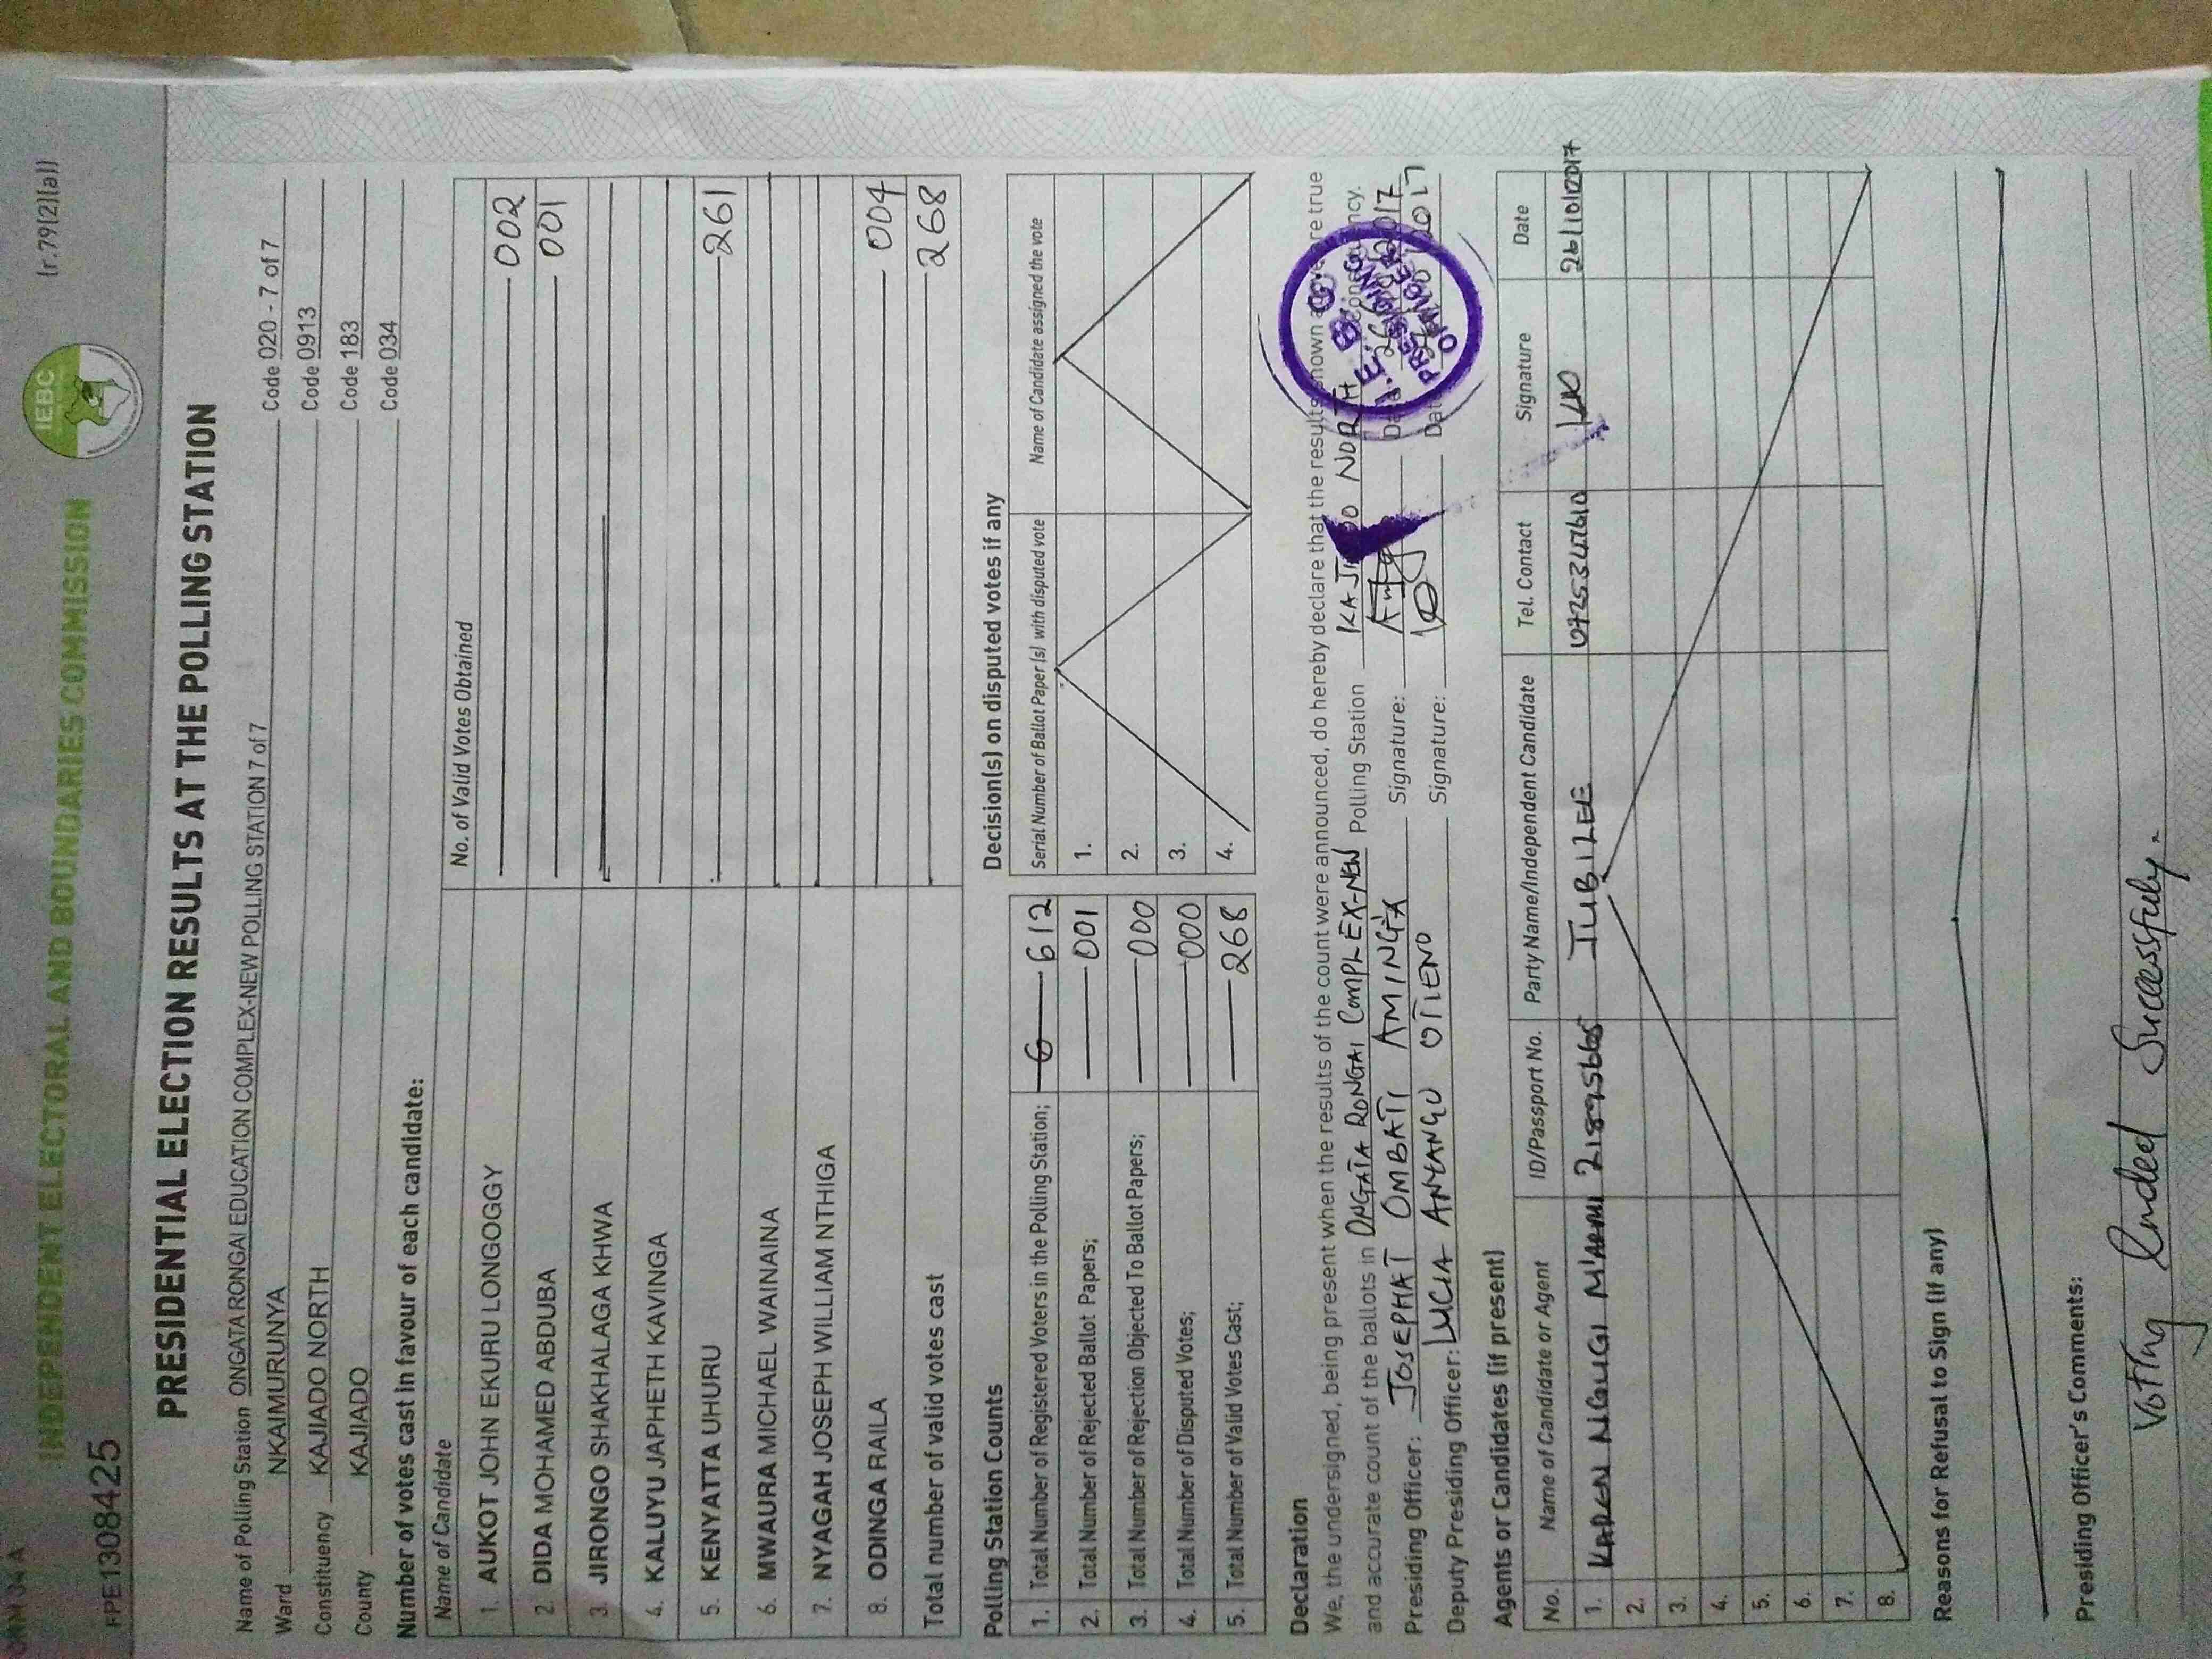 FORM 34 A
(r.79(2)(a))
IEBC
INDEPENDENT ELECTORAL AND BOUNDARIES COMMISSION
PPE1308425
PRESIDENTIAL ELECTION RESULTS AT THE POLLING STATION
Name of Polling Station ONGATA RONGAI EDUCATION COMPLEX-NEW POLLING STATION 7 of 7 Code 020 - 7 of 7
Ward NKAIMURUNYA Code 0913
Constituency KAJIADO NORTH Code 183
County KAJIADO Code 034
Number of votes cast in favour of each candidate:
Name of Candidate No. of Valid Votes Obtained
1. AUKOT JOHN EKURU LONGOGGY 002
2. DIDA MOHAMED ABDUBA 001
3. JIRONGO SHAKHALAGA KHWA
4. KALUYU JAPHETH KAVINGA
5. KENYATTA UHURU 261
6. MWAURA MICHAEL WAINAINA
7. NYAGAH JOSEPH WILLIAM NTHIGA
8. ODINGA RAILA 004
Total number of valid votes cast 268
Polling Station Counts
1. Total Number of Registered Voters in the Polling Station; 612
2. Total Number of Rejected Ballot Papers; 001
3. Total Number of Rejection Objected To Ballot Papers; 000
4. Total Number of Disputed Votes; 000
5. Total Number of Valid Votes Cast; 268
Decision(s) on disputed votes if any
Serial Number of Ballot Paper(s) with disputed vote Name of Candidate assigned the vote
1.
2.
3.
4.
Declaration
We, the undersigned, being present when the results of the count were announced, do hereby declare that the results shown above are true
and accurate count of the ballots in ONGATA RONGAI COMPLEX-NEW Polling Station KAJIADO NORTH Constituency.
Presiding Officer: JOSEPHAT OMBATI AMING'A Signature: Date 26/10/2017
Deputy Presiding Officer: LUCIA ANYANGO OTIENO Signature: Date 2017
I.E.B.C.
PRESIDING
OFFICER
Agents or Candidates (if present)
No. Name of Candidate or Agent ID/Passport No. Party Name/Independent Candidate Tel. Contact Signature Date
1. KAREN NGUGI 21895665 JUBILEE 0725347610 26/10/2017
2.
3.
4.
5.
6.
7.
8.
Reasons for Refusal to Sign (if any)
Presiding Officer's Comments:
Voting Ended Sucessfuly.